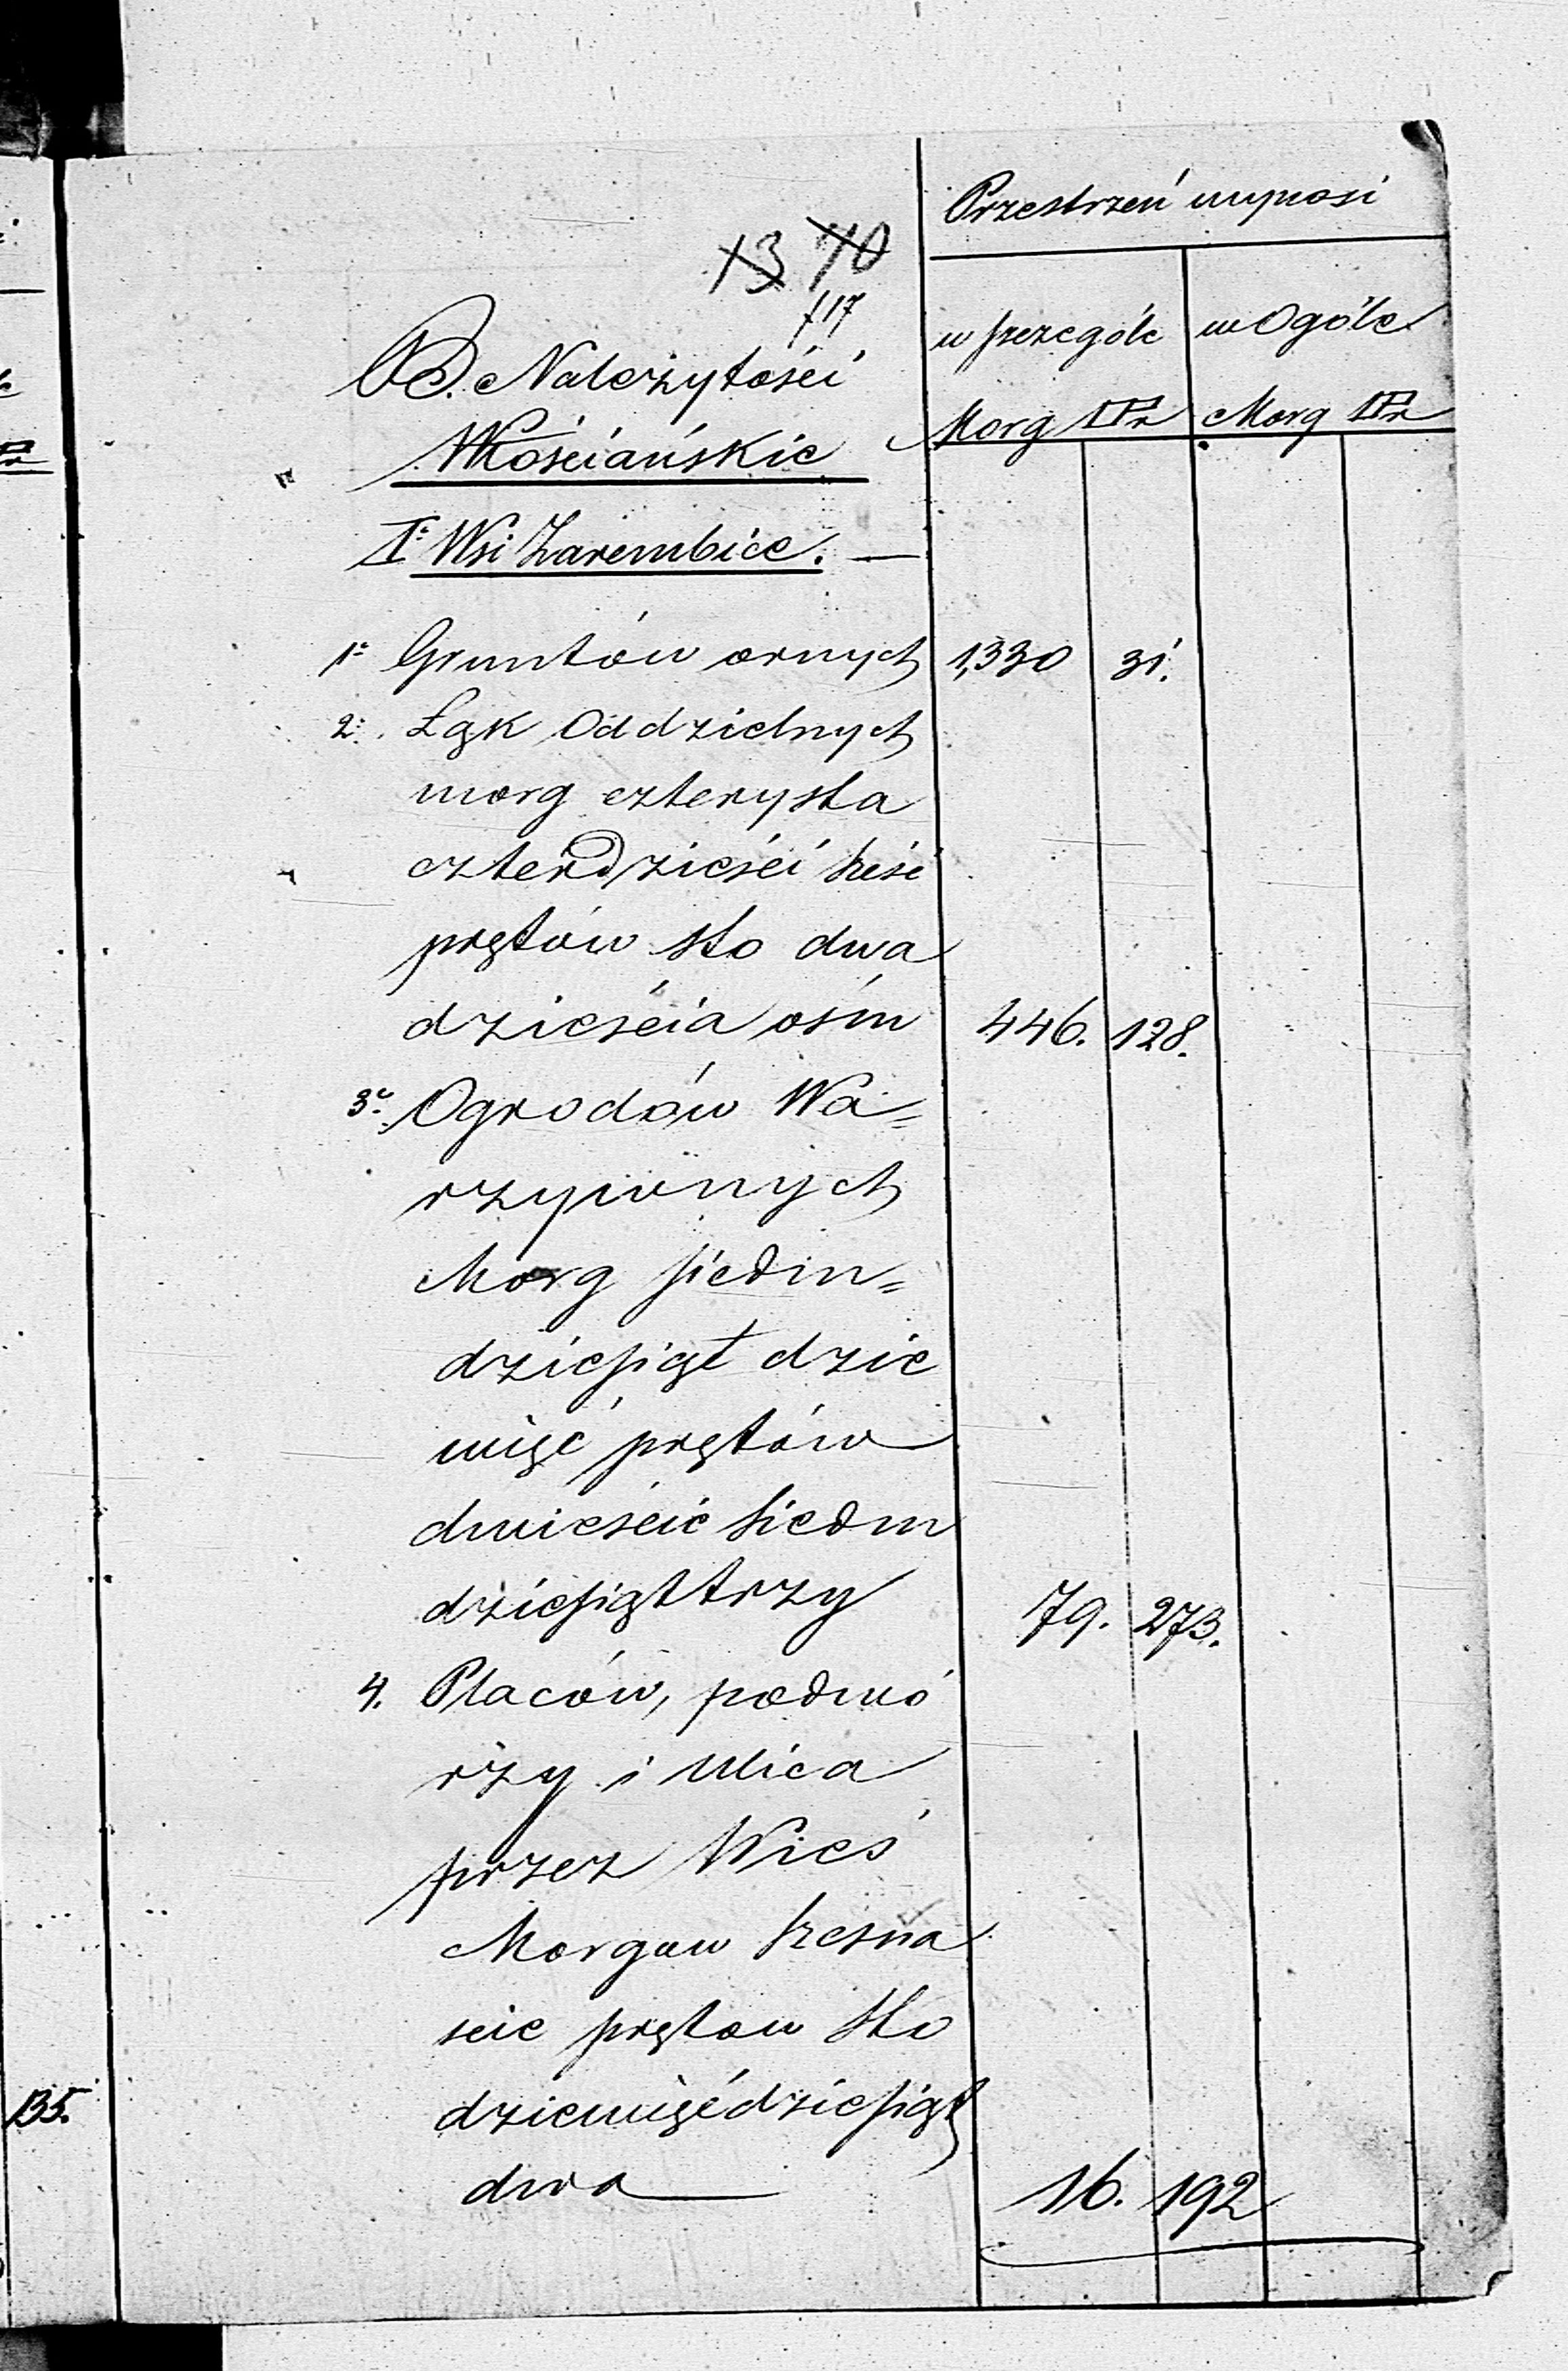 Przestrzeń wynosi
13 70
117
w szczególe w Ogóle
Morg □Pr Morg □Pr
B. Należytości
Włościańskie
I: Wsi Zarembice. —
1: Gruntów ornych 1,330 31.
2: Łąk Oddzielnych
morg czterysta
czterdzieści sześć
prętów sto dwa
dzieścia ośm 446. 128.
3: Ogrodów Wa=
rzywnych
Morg siedm=
dziesiąt dzie
więć prętów
dwieście siedm
dziesiąt trzy 79. 273.
4. Placów, podwó
rzy i ulica
przez Wieś
Morgow szesna
scie prętow sto
dziewięćdziesiąt
dwa — 16. 192
135.